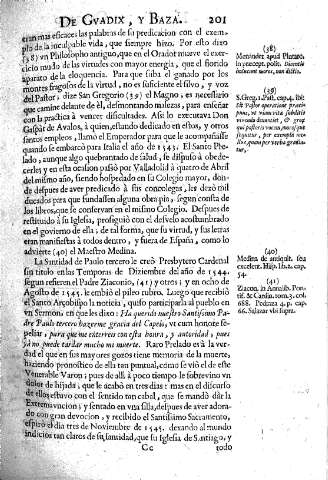 DE GVADIX, Y BAZA. 201
eran mas eficaces las palabras de su predicacion con el exem-
plo de la inculpable vida, que siempre hizo. Por esto dixo
(38) vn Philosopho antiguo, que en el Orador mueve el exer-
cicio mudo de las virtudes con mayor energia, que el florido
aparato de la eloquencia. Para que suba el ganado por los
montes fragosos de la virtud, no es suficiente el silvo, y voz
del Pastor, dize San Gregorio (39) el Magno, es necessario
que camine delante de èl, desmontando malezas, para enseñar
con la practica à vencer dificultades. Assi lo executava Don
Gaspar de Avalos, à quien, estando dedicado en estos, y otros
santos empleos, llamò el Emperador para que le acompañasse
quando se embarcò para Italia el año de 1543. El Santo Pre-
lado, aunque algo quebrantado de salud, se dispuso à obede-
cerle; y en esta ocasion passò por Valladolid à quatro de Abril
del mismo año, siendo hospedado en su Colegio mayor, don-
de despues de aver predicado à sus concolegas, les dexò mil
ducados para que fundassen alguna obra pia, segun consta de
los libros, que se conservan en el mismo Colegio. Despues de
restituido à su Iglesia, prosiguiò con el desvelo acostumbrado
en el govierno de ella; de tal forma, que su virtud, y sus letras
eran manifiestas à todos dentro, y fuera de España, como lo
advierte (40) el Maestro Medina.
La Santidad de Paulo tercero le creò Presbytero Cardenal
sin titulo en las Temporas de Diziembre del año de 1544.
segun refieren el Padre Ziaconio, (41) y otros; y en ocho de
Agosto de 1545. le embiò el pileo rubro. Luego que recibiò
el Santo Arçobispo la noticia, quiso participarla al pueblo en
vn Sermon, en que les dixo: Ha querido nuestro Santissimo Pa-
dre Paulo tercero hazerme gracia del Capelo, vt cum honore se-
peliar, para que me entierren con esta honra, y autoridad, pues
yà no puede tardar mucho mi muerte. Raro Prelado es à la ver-
dad el que en sus mayores gozes tiene memoria de la muerte,
haziendo pronostico de ella tan puntual, como se viò el de este
Venerable Varon; pues de allì à poco tiempo le sobrevino vn
dolor de hijada, que le acabò en tres dias; mas en el discurso
de ellos estuvo con el sentido tan cabal, que se mandò dàr la
Extremavncion; y sentado en vna silla, despues de aver adora-
do con gran devocion, y recibido el Santissimo Sacramento,
espirò el dia tres de Noviembre de 1545. dexando al mundo
indicios tan claros de su santidad, que su Iglesia de Santiago, y
Cc todo
(38)
Menander apud Plutarc.
in præcept. polit.
(39)
S. Greg.
(40)
Medina de antiquit. seu
excelent. Hisp. lib. 2. cap.
54.
(41)
Ziacon. in Annalib. Pon-
tif. & Cardin. tom. 3. col.
688. Pedraza 4. p. cap.
66. Salazar vbi supra.